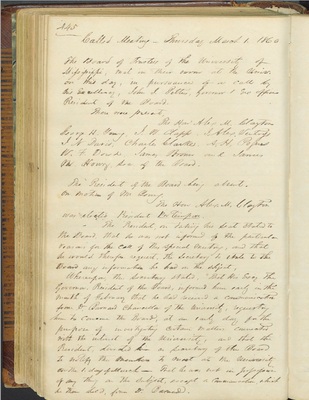 Called Meeting - Thursday March 1. 1860
The Board of Trustees of the University of
Mississippi, met in their room at the
this day, in pursuance of a call of
the Secretary, John J. Pettus, Governor & Ex officio
President of the Board.
There were present,
The Hon Alex M. Clayton
George H. Young, J. W. Clapp,
Charles Clark,
James Brown and James
M. Howry, Sec of the Board.
The President of the Board being absent.
On motion of Mr Young,
The Hon Alex M. Clayton
was elected President Pro tempore.
The President, on taking his seat stated to
the Board that he was not apprised of the particular
reasons for the call of the special meeting, and that
he would therefore request, the Secretary to state to the
Board any information he had on the subject,
Whereupon, the Secretary stated that his Excy The
Governor, President of the Board, informed him early in the
month of February that he had received a communication
from Dr Barnard Chancellor of the University, requesting
him to convene the Board, at an early day for the
purpose of investigating certain matters connected
with the interest of the University, and that the
President, directed him as Secretary of the Board
To notify the members to meet at the University
on the 1 day of March - That he was not in possession
of any thing on the subject, except a communication which
he then held, from Dr Barnard.